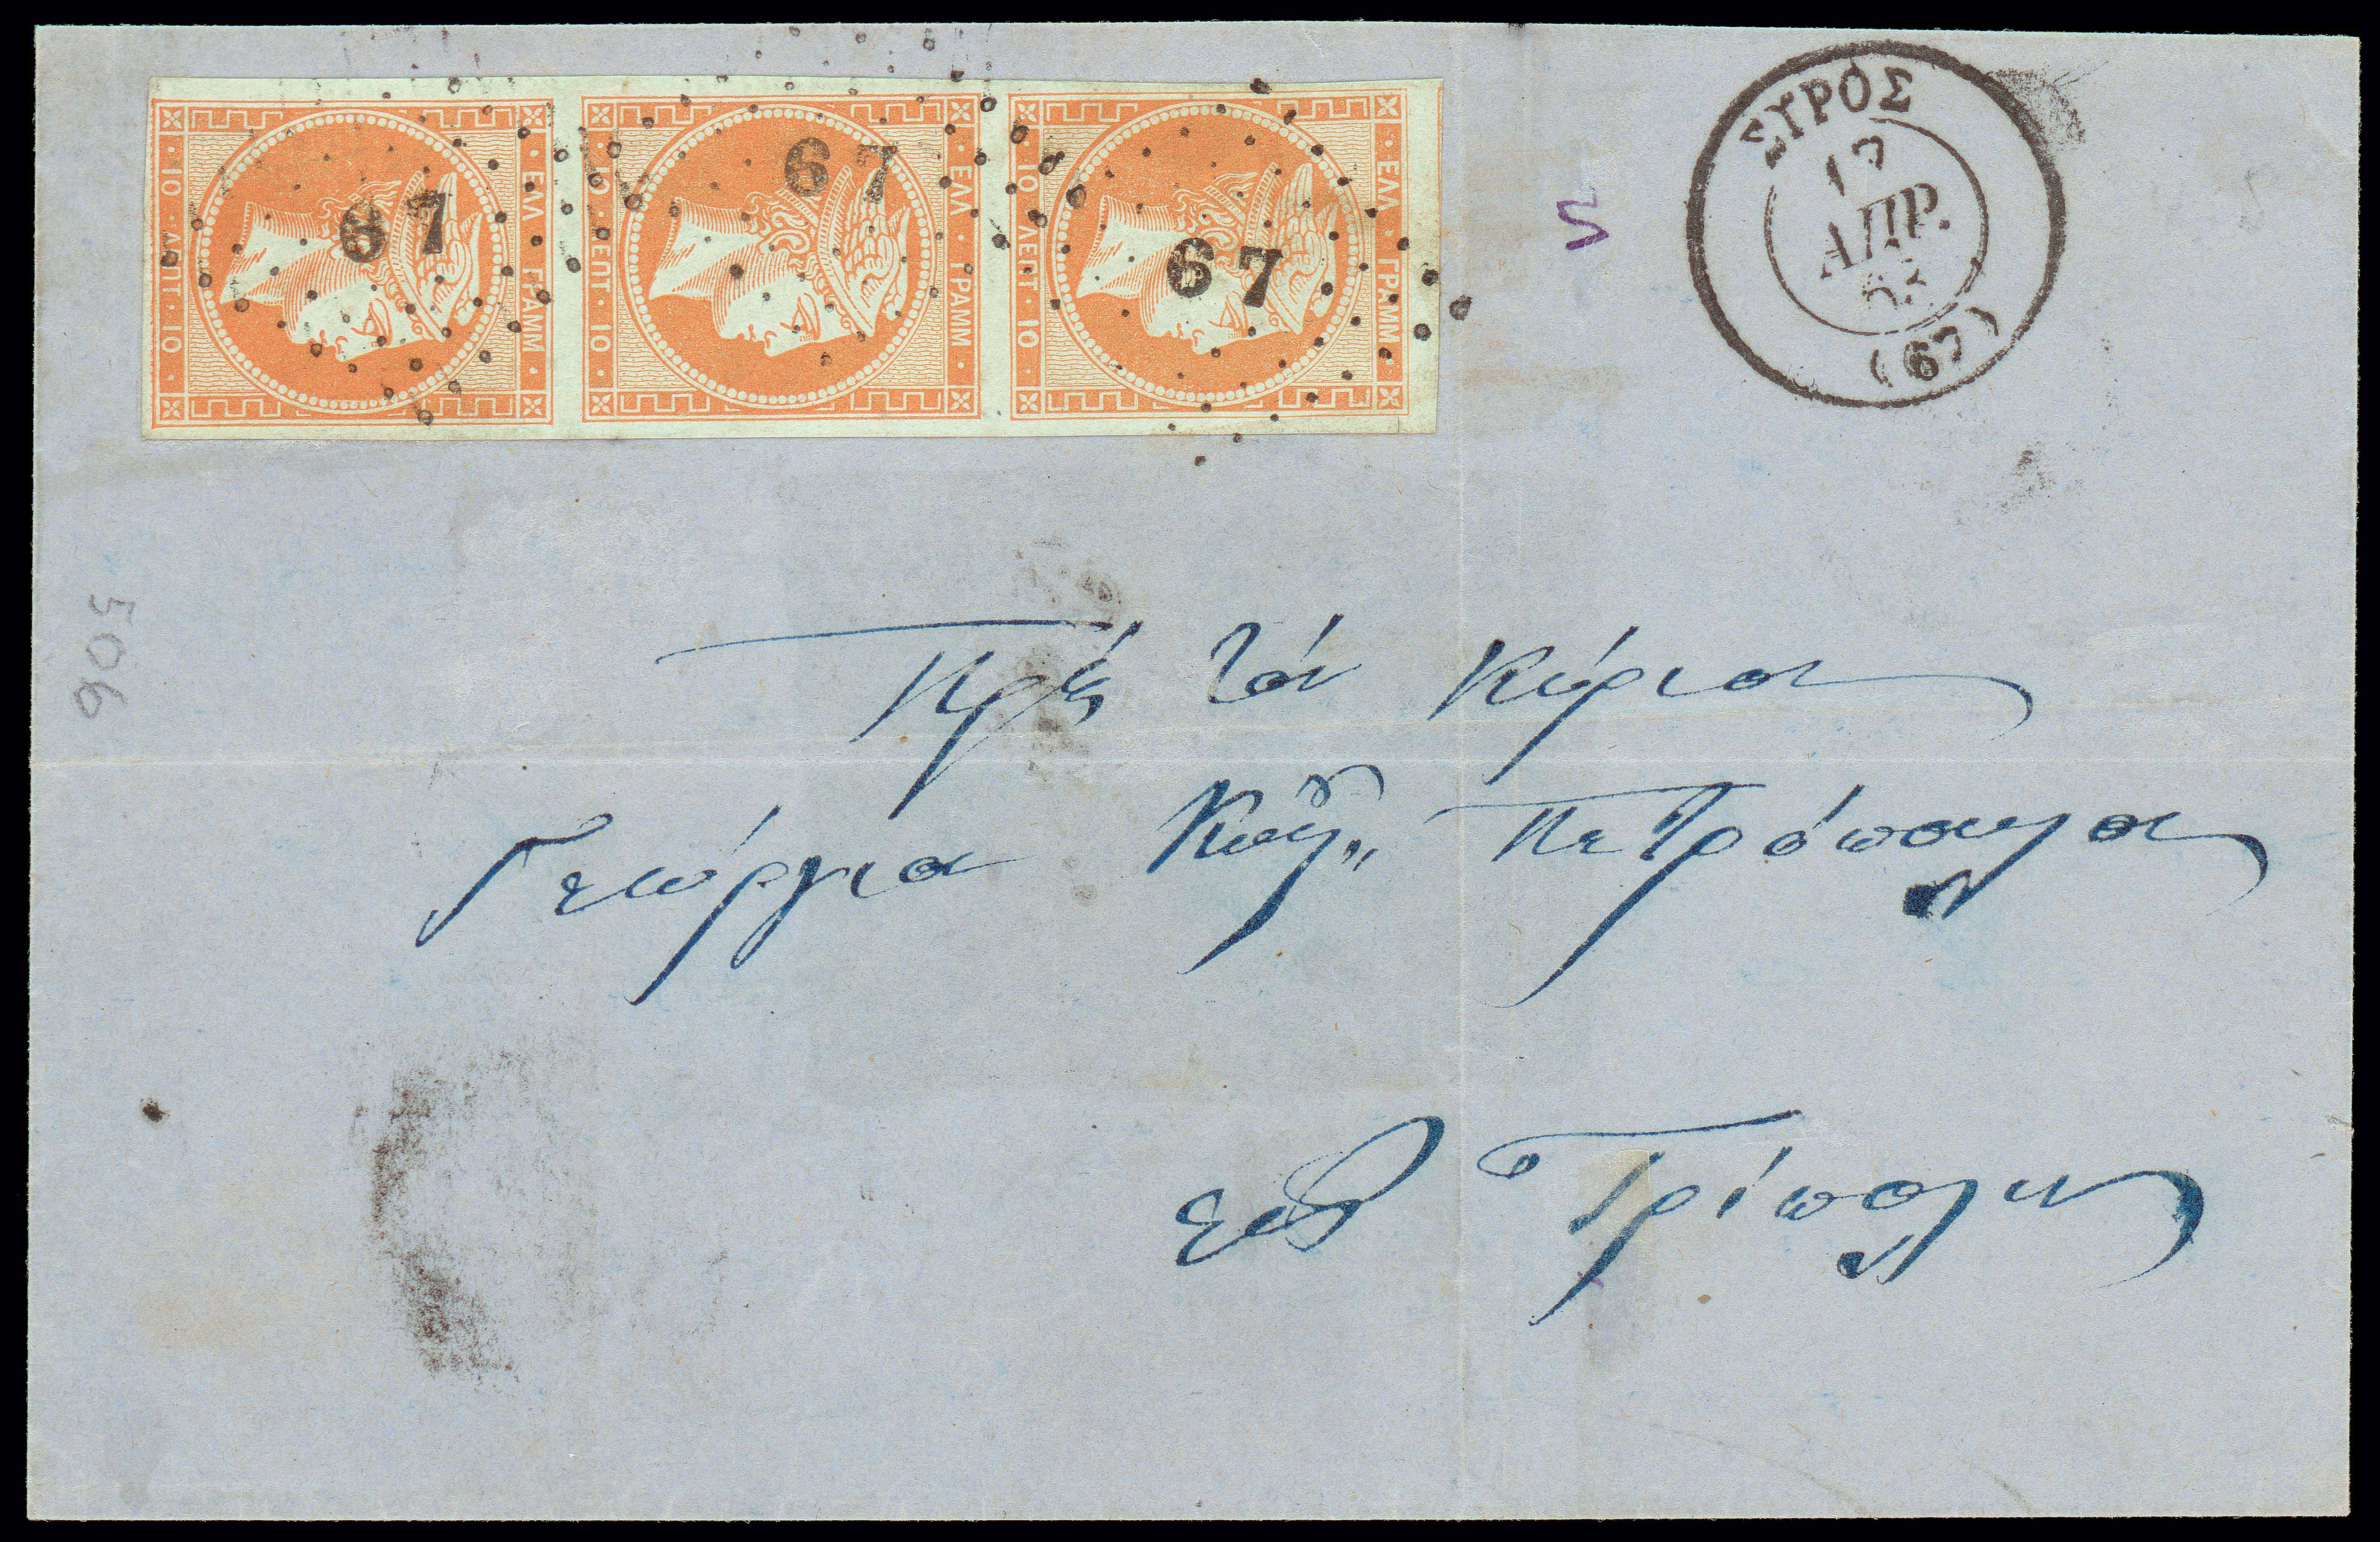 ΕΛΛ · ΓΡΑΜΜ · 10 · ΛΕΠΤ · 10
67
ΕΛΛ · ΓΡΑΜΜ · 10 · ΛΕΠΤ · 10
67
ΕΛΛ · ΓΡΑΜΜ · 10 · ΛΕΠΤ · 10
67
ΣΥΡΟΣ
ΑΠΡ.
(67)
506
Πρὸς τὸν Κύριον
Γεώργιον Πετρόπουλον
εἰς Τρίπολιν